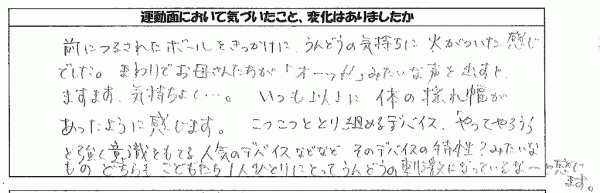 運動面において気づいたこと、変化はありましたか
前につるされたボールをきっかけに、うんどうの気持ちに火がついた感じ
でした。まわりでお母さんたちが「オーッ!!」みたいな声を出すと、
ますます、気持ちよく…。いつも以上に体の揺れ幅が
あったように感じます。こつこつととり組めるデバイス、やってやろうっ
と強く意識をもてる人気のデバイスなどなど そのデバイスの特性?みたいな
もの どちらも こどもたち1人ひとりにとってうんどうの刺激になっているなーと感じ
ます。